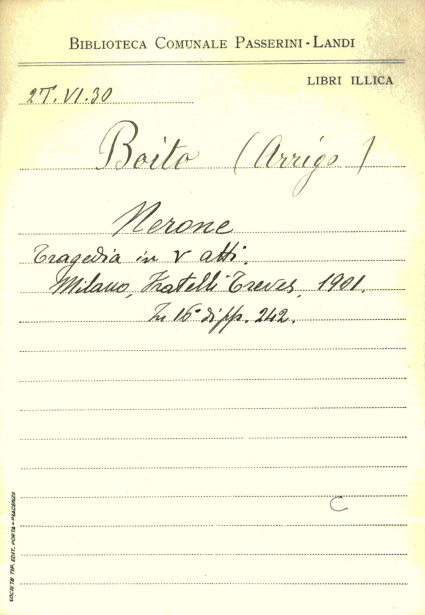 BIBLIOTECA COMUNALE PASSERINI-LANDI
LIBRI ILLICA
27.VI.30
Boito (Arrigo)
Nerone
Tragedia in V atti.
Milano, Fratelli Treves, 1901.
In 16° di pp. 242.
C
SOCIETÀ TIP. EDIT. PORTA - PIACENZA